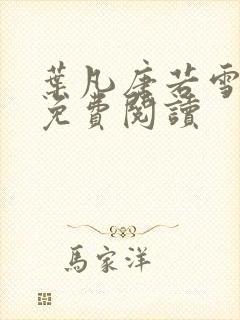 葉凡唐若雪
免費閱讀
馬家洋